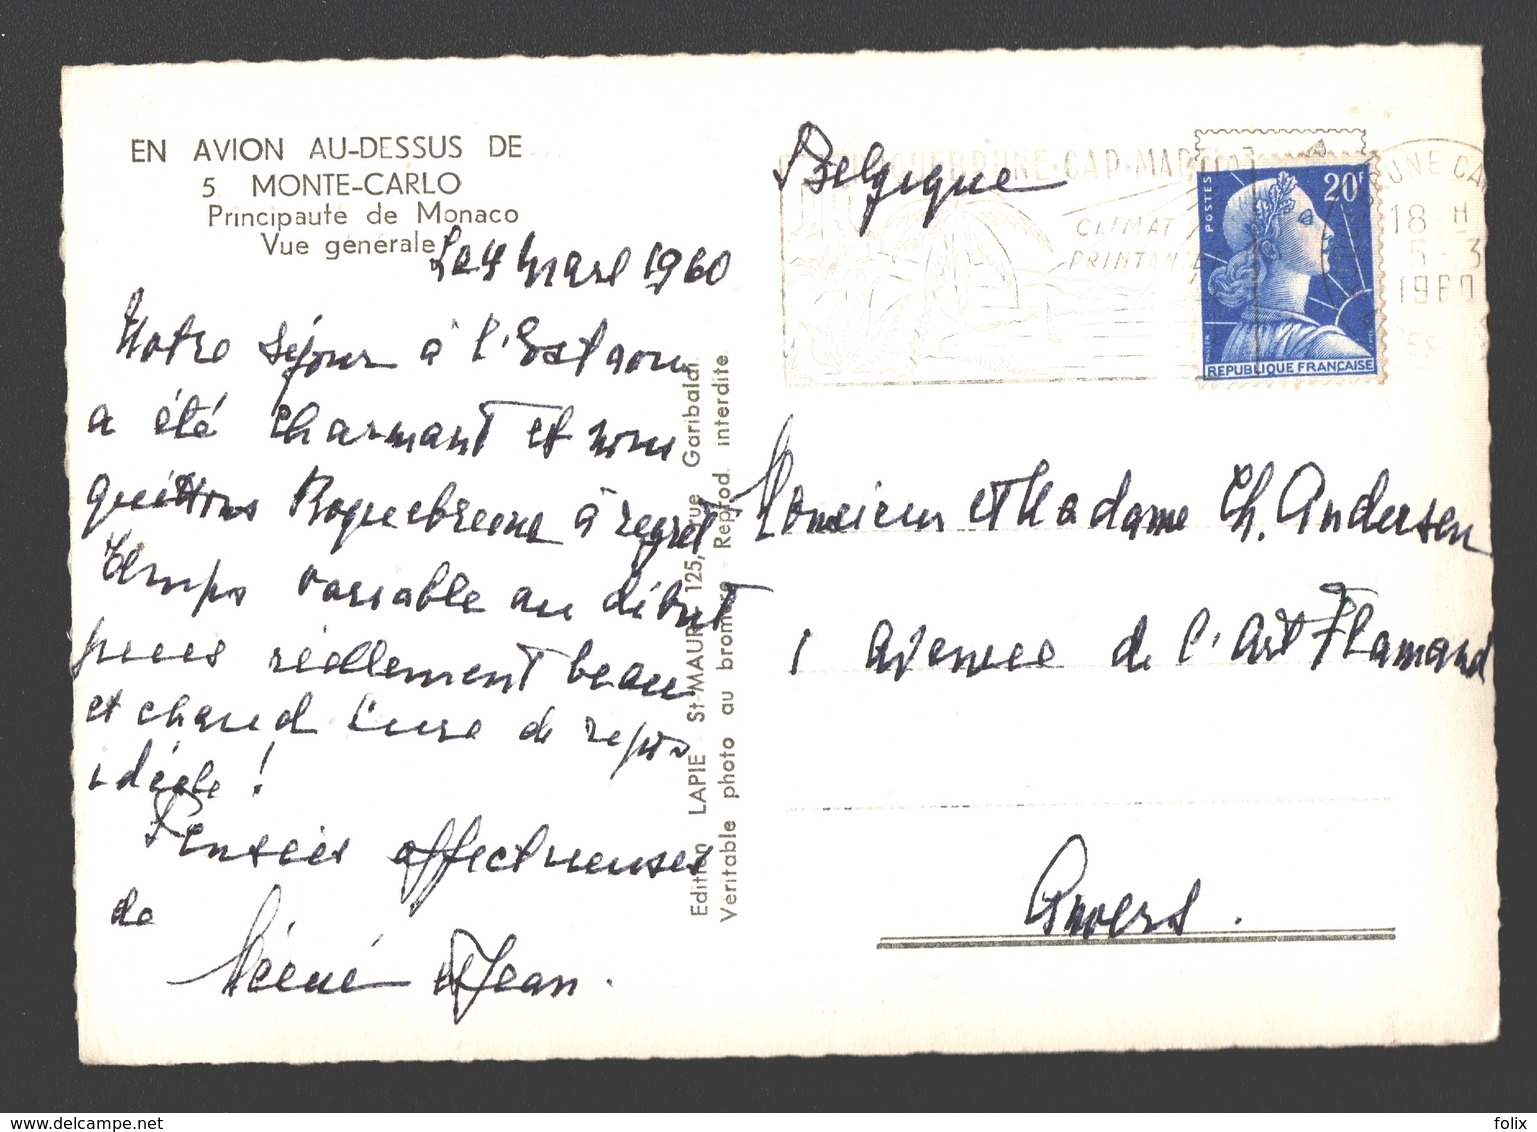 EN AVION AU-DESSUS DE...
5. MONTE-CARLO
Principauté de Monaco
Vue générale
Le 4 Mars 1960
Notre séjour à l'Estaou
a été charmant et nous
quittons Roquebrune à regret
Temps variable au début
puis réellement beau
et chaud Cure de repos
idéale !
Pensées affectueuses
de
et Jean.
Edition LAPIE - St-MAUR 125, rue Garibaldi.
Véritable photo au bromure - Reprod. interdite.
Belgique
ROQUEBRUNE-CAP-MARTIN
CLIMAT
PRINTANIER
POSTES
20F
REPUBLIQUE FRANÇAISE
UNE CA
18 H
5 - 3
1960
Monsieur et Madame Ch. Andersen
1 avenue de l'Art Flamand
Anvers.
felix